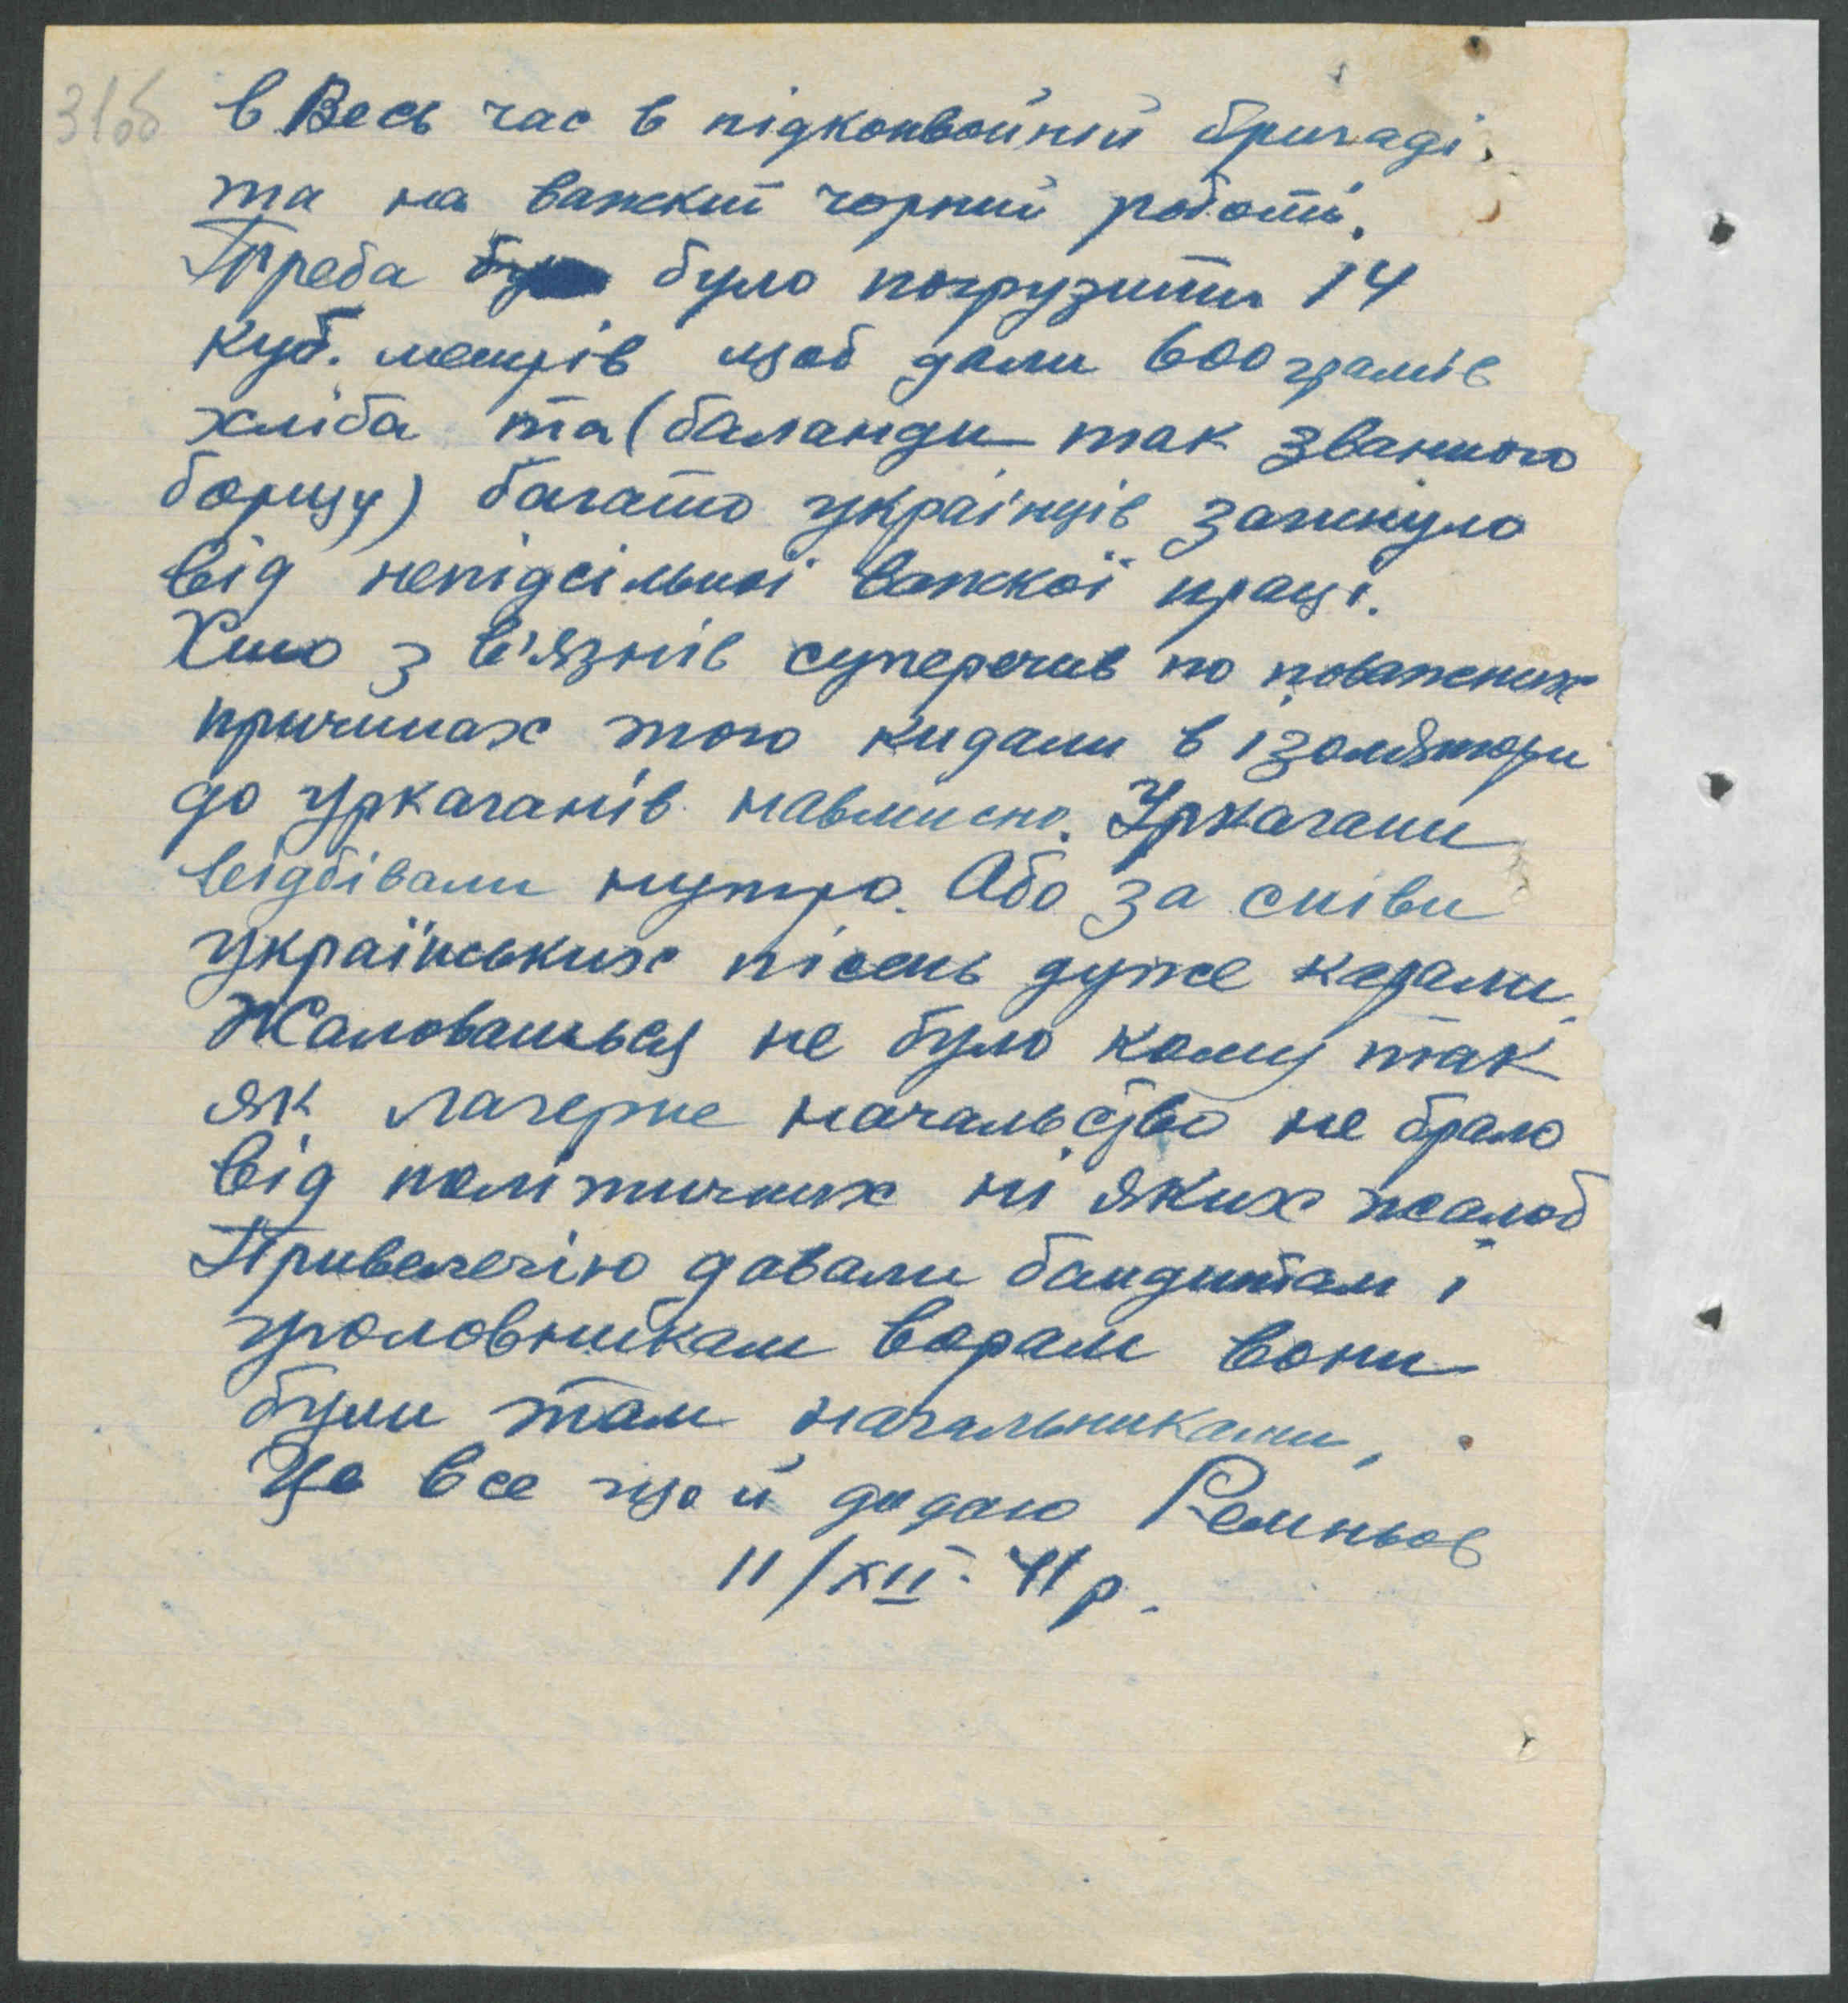 31об
в Весь час в підконвойній бригаді
та на важкий чорний роботі.
Треба було погрузити 14
куб. метрів щоб дали 600 грамів
хліба та (баланди так званного
борщу) багато українців загинуло
від непідсільної важкої праці.
Хто з в'язнів суперечив по поважних
причинах того кидали в ізолятори
до уркаганів навмисно. Уркагани
відбівали нутро. Або за співи
українських пісень дуже карали.
Жаловаться не було кому так
як лагерне начальство не брало
від політичних ні яких жалоб
Привелегію давали бандитам і
уголовникам ворам вони
були там начальниками,
Це все що й додаю Ремньов
11/XII. 41 р.